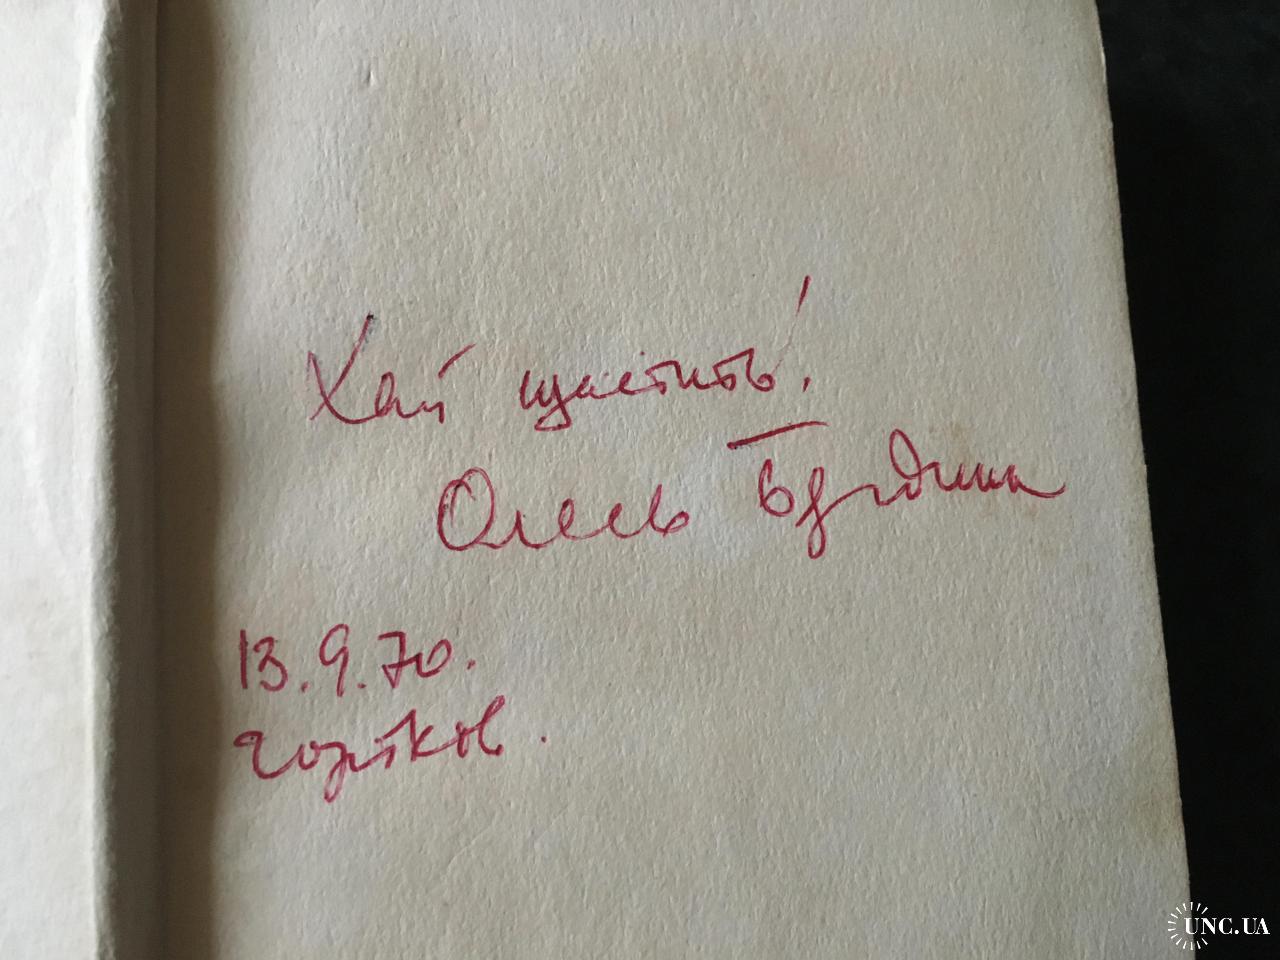 Хай щастить!
Олесь Бердник
13.9.70.
Чортков.
UNC.UA